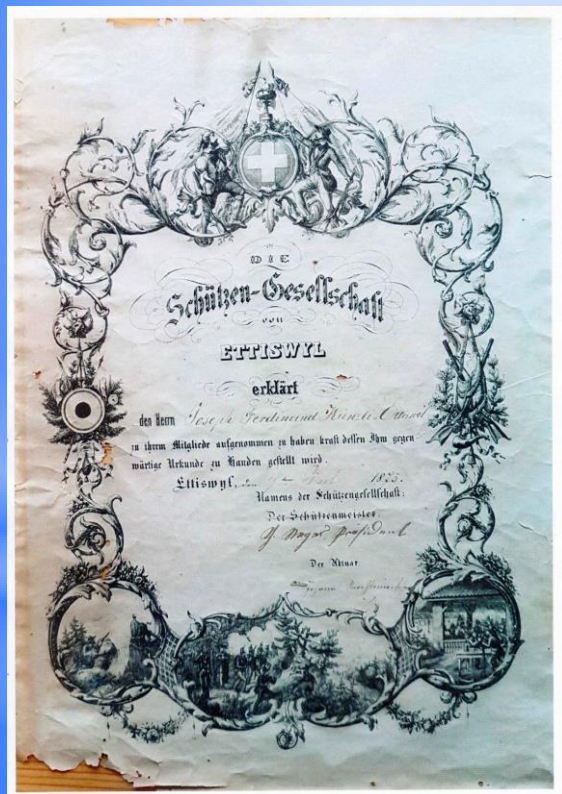 DIE
Schützen-Gesellschaft
von
ETTISWYL
erklärt
den Herrn Joseph Ferdinand Künzli
zu ihrem Mitgliede aufgenommen zu haben kraft dessen Ihm gegen
wärtige Urkunde zu Handen gestellt wird.
Ettiswyl, den
Namens der Schützengesellschaft:
Der Schützenmeister:
Präsident
Der Aktuar